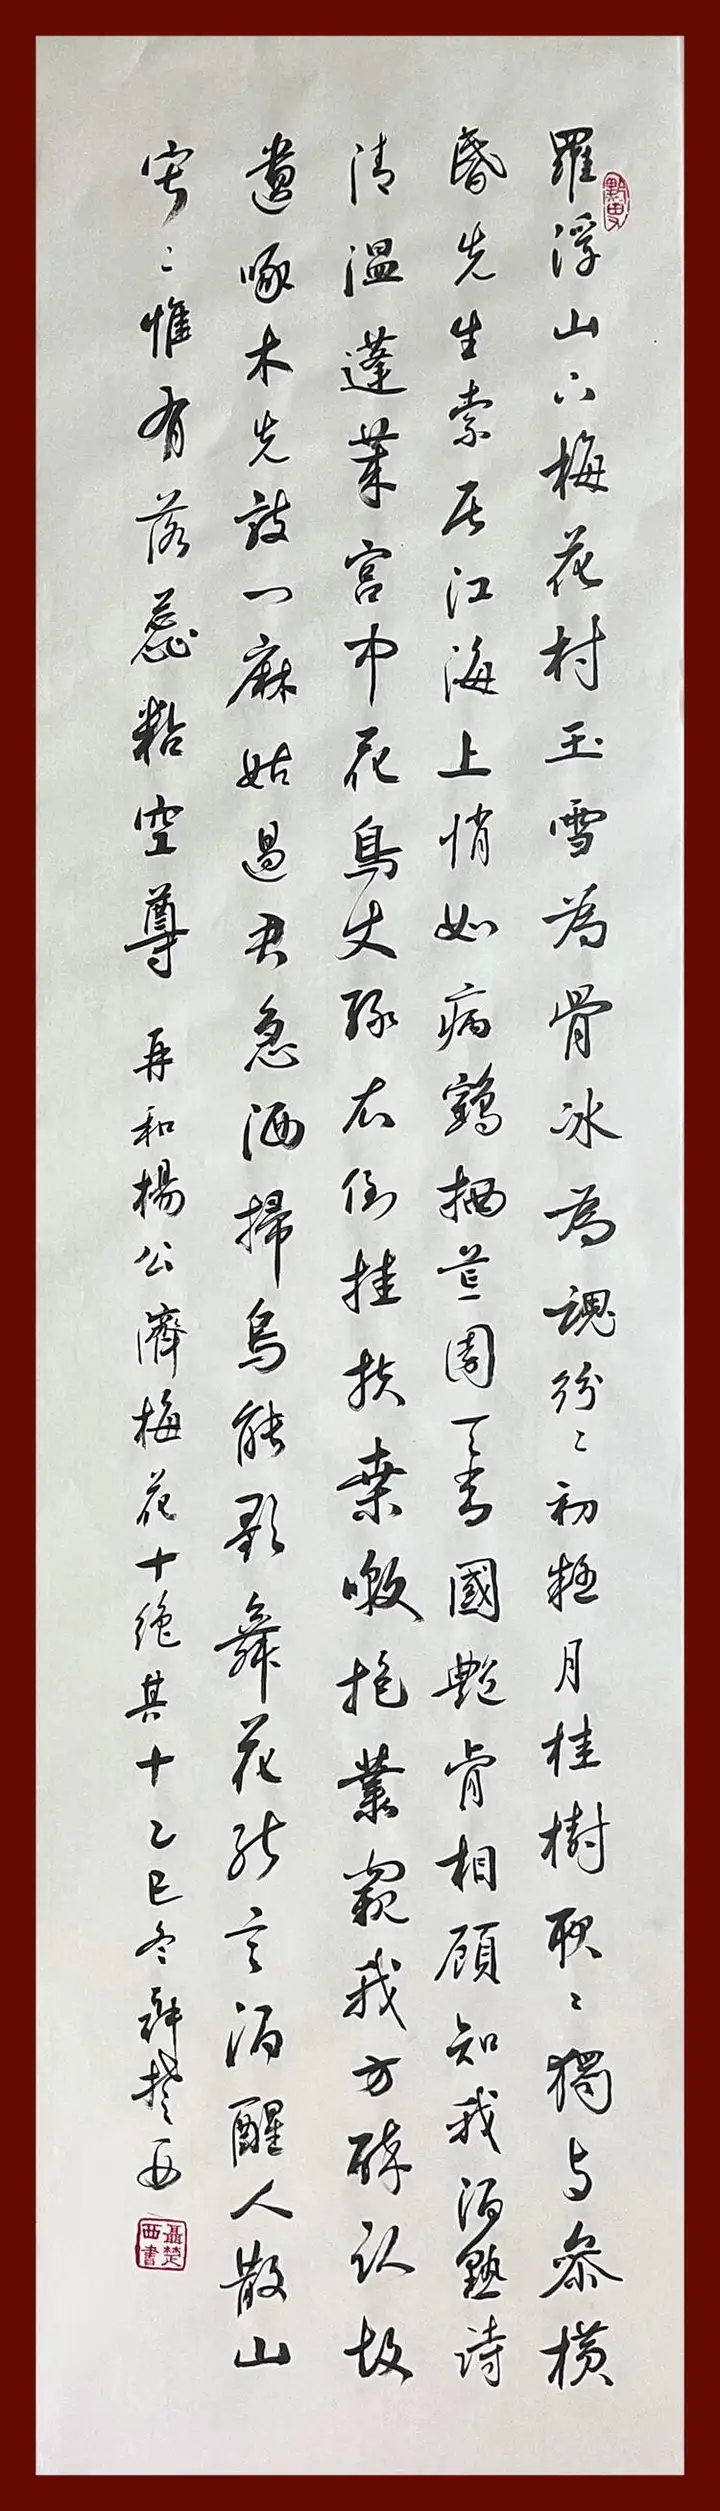 羅浮山下梅花村玉雪為骨冰為魂紛〻初疑月桂樹耿〻獨与參横
昏先生索居江海上悄如病鶴栖荒園天香國艷肯相顧知我酒熟詩
清温蓬萊宫中花鳥使绿衣倒挂扶桑暾抱叢窺我方醉卧故
遣啄木先敲门麻姑過君急洒掃鳥能歌舞花能言酒醒人散山
寂〻惟有落蕊粘空尊 再和楊公濟梅花十絶其十乙巳冬聶楚西
聶楚西書